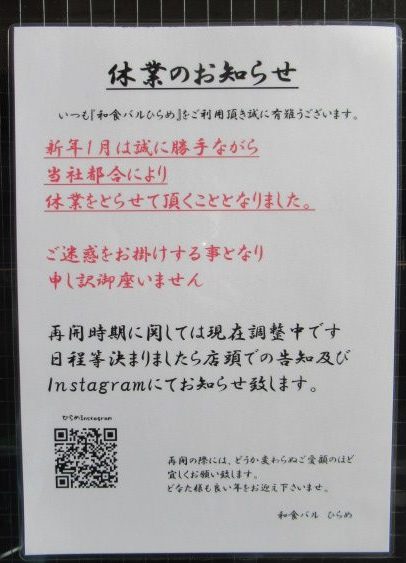 休業のお知らせ
いつも『和食バルひらめ』をご利用頂き誠に有難うございます。
新年1月は誠に勝手ながら
当社都合により
休業をとらせて頂くこととなりました。
ご迷惑をお掛けする事となり
申し訳御座いません
再開時期に関しては現在調整中です
日程等決まりましたら店頭での告知及び
Instagramにてお知らせ致します。
ひらめInstagram
再開の際には、どうか変わらぬご愛顧のほど
宜しくお願い致します。
どなた様も良い年をお迎え下さいませ。
和食バル ひらめ